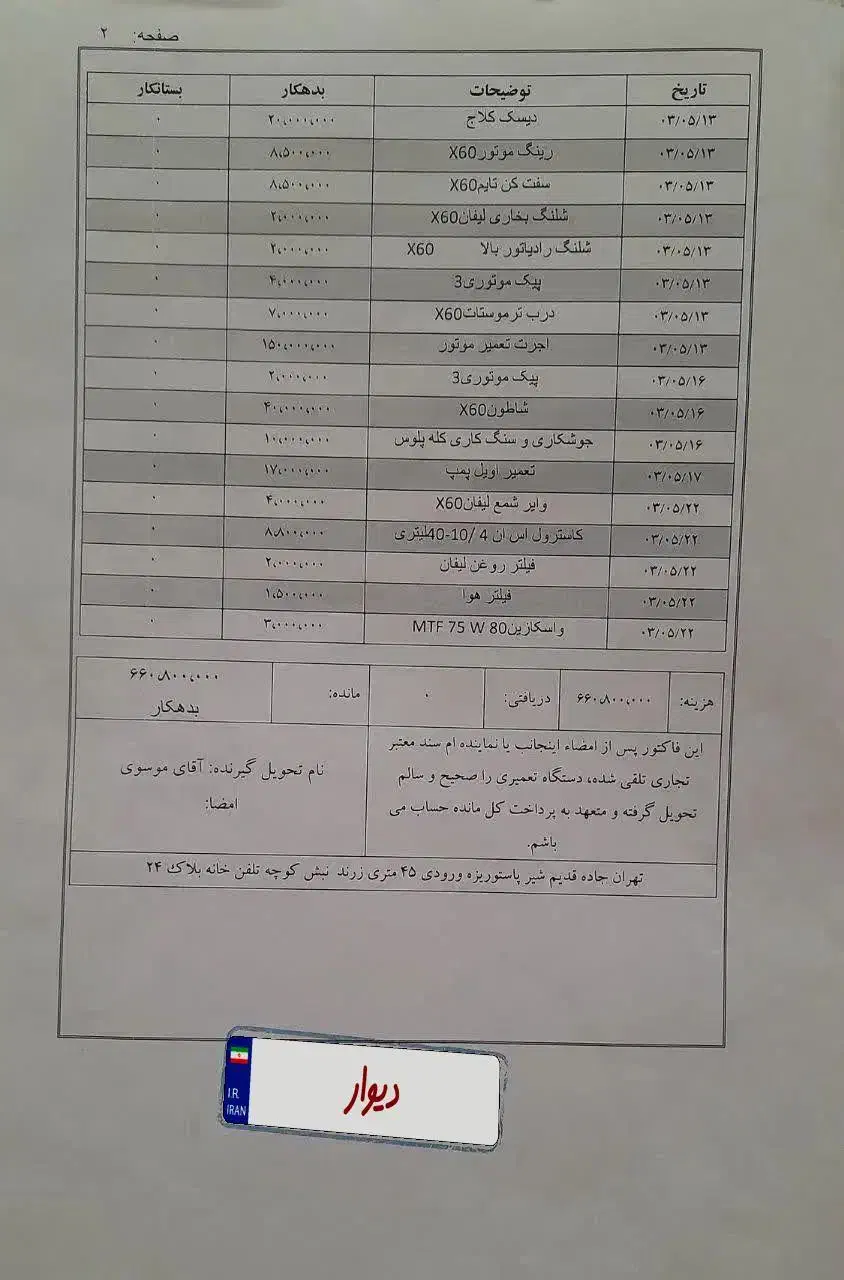 صفحه: ۲
تاریخ توضیحات بدهکار بستانکار
۰۳/۰۵/۱۳ دیسک کلاج ۲۰،۰۰۰،۰۰۰ ۰
۰۳/۰۵/۱۳ رینگ موتورX60 ۸،۵۰۰،۰۰۰ ۰
۰۳/۰۵/۱۳ سفت کن تایمX60 ۸،۵۰۰،۰۰۰ ۰
۰۳/۰۵/۱۳ شلنگ بخاری لیفانX60 ۲،۰۰۰،۰۰۰ ۰
۰۳/۰۵/۱۳ شلنگ رادیاتور بالا X60 ۲،۰۰۰،۰۰۰ ۰
۰۳/۰۵/۱۳ پیک موتوری3 ۴،۰۰۰،۰۰۰ ۰
۰۳/۰۵/۱۳ درب ترموستاتX60 ۷،۰۰۰،۰۰۰ ۰
۰۳/۰۵/۱۳ اجرت تعمیر موتور ۱۵۰،۰۰۰،۰۰۰ ۰
۰۳/۰۵/۱۶ پیک موتوری3 ۲،۰۰۰،۰۰۰ ۰
۰۳/۰۵/۱۶ شاطونX60 ۴۰،۰۰۰،۰۰۰ ۰
۰۳/۰۵/۱۶ جوشکاری و سنگ کاری کله پلوس ۱۰،۰۰۰،۰۰۰ ۰
۰۳/۰۵/۱۷ تعمیر اویل پمپ ۱۷،۰۰۰،۰۰۰ ۰
۰۳/۰۵/۲۲ وایر شمع لیفانX60 ۴،۰۰۰،۰۰۰ ۰
۰۳/۰۵/۲۲ کاسترول اس ان 4 /10-40لیتری ۸،۸۰۰،۰۰۰ ۰
۰۳/۰۵/۲۲ فیلتر روغن لیفان ۲،۰۰۰،۰۰۰ ۰
۰۳/۰۵/۲۲ فیلتر هوا ۱،۵۰۰،۰۰۰ ۰
۰۳/۰۵/۲۲ واسکازینMTF 75 W 80 ۳،۰۰۰،۰۰۰ ۰
هزینه: ۶۶۰،۸۰۰،۰۰۰ دریافتی: ۰ مانده: ۶۶۰،۸۰۰،۰۰۰
بدهکار
این فاکتور پس از امضاء اینجانب یا نماینده ام سند معتبر
تجاری تلقی شده، دستگاه تعمیری را صحیح و سالم
تحویل گرفته و متعهد به پرداخت کل مانده حساب می
باشم.
نام تحویل گیرنده: آقای موسوی
امضا:
تهران جاده قدیم شیر پاستوریزه ورودی ۴۵ متری زرند نبش کوچه تلفن خانه بلاک ۲۴
I.R.
IRAN
دیوار